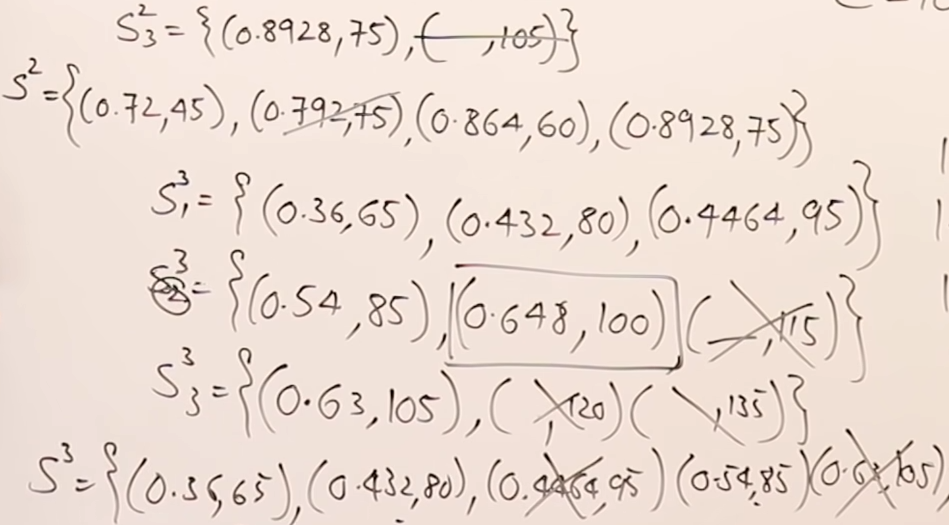 S²₃ = {(0.8928,75), ( ,105)}
S² = {(0.72,45), (0.792,75), (0.864,60), (0.8928,75)}
S³₁ = {(0.36,65), (0.432,80), (0.4464,95)}
S³₂ = {(0.54,85), (0.648,100) ( ,115)}
S³₃ = {(0.63,105), ( ,120) ( ,135)}
S³ = {(0.36,65), (0.432,80), (0.4464,95) (0.54,85) (0.63,105)